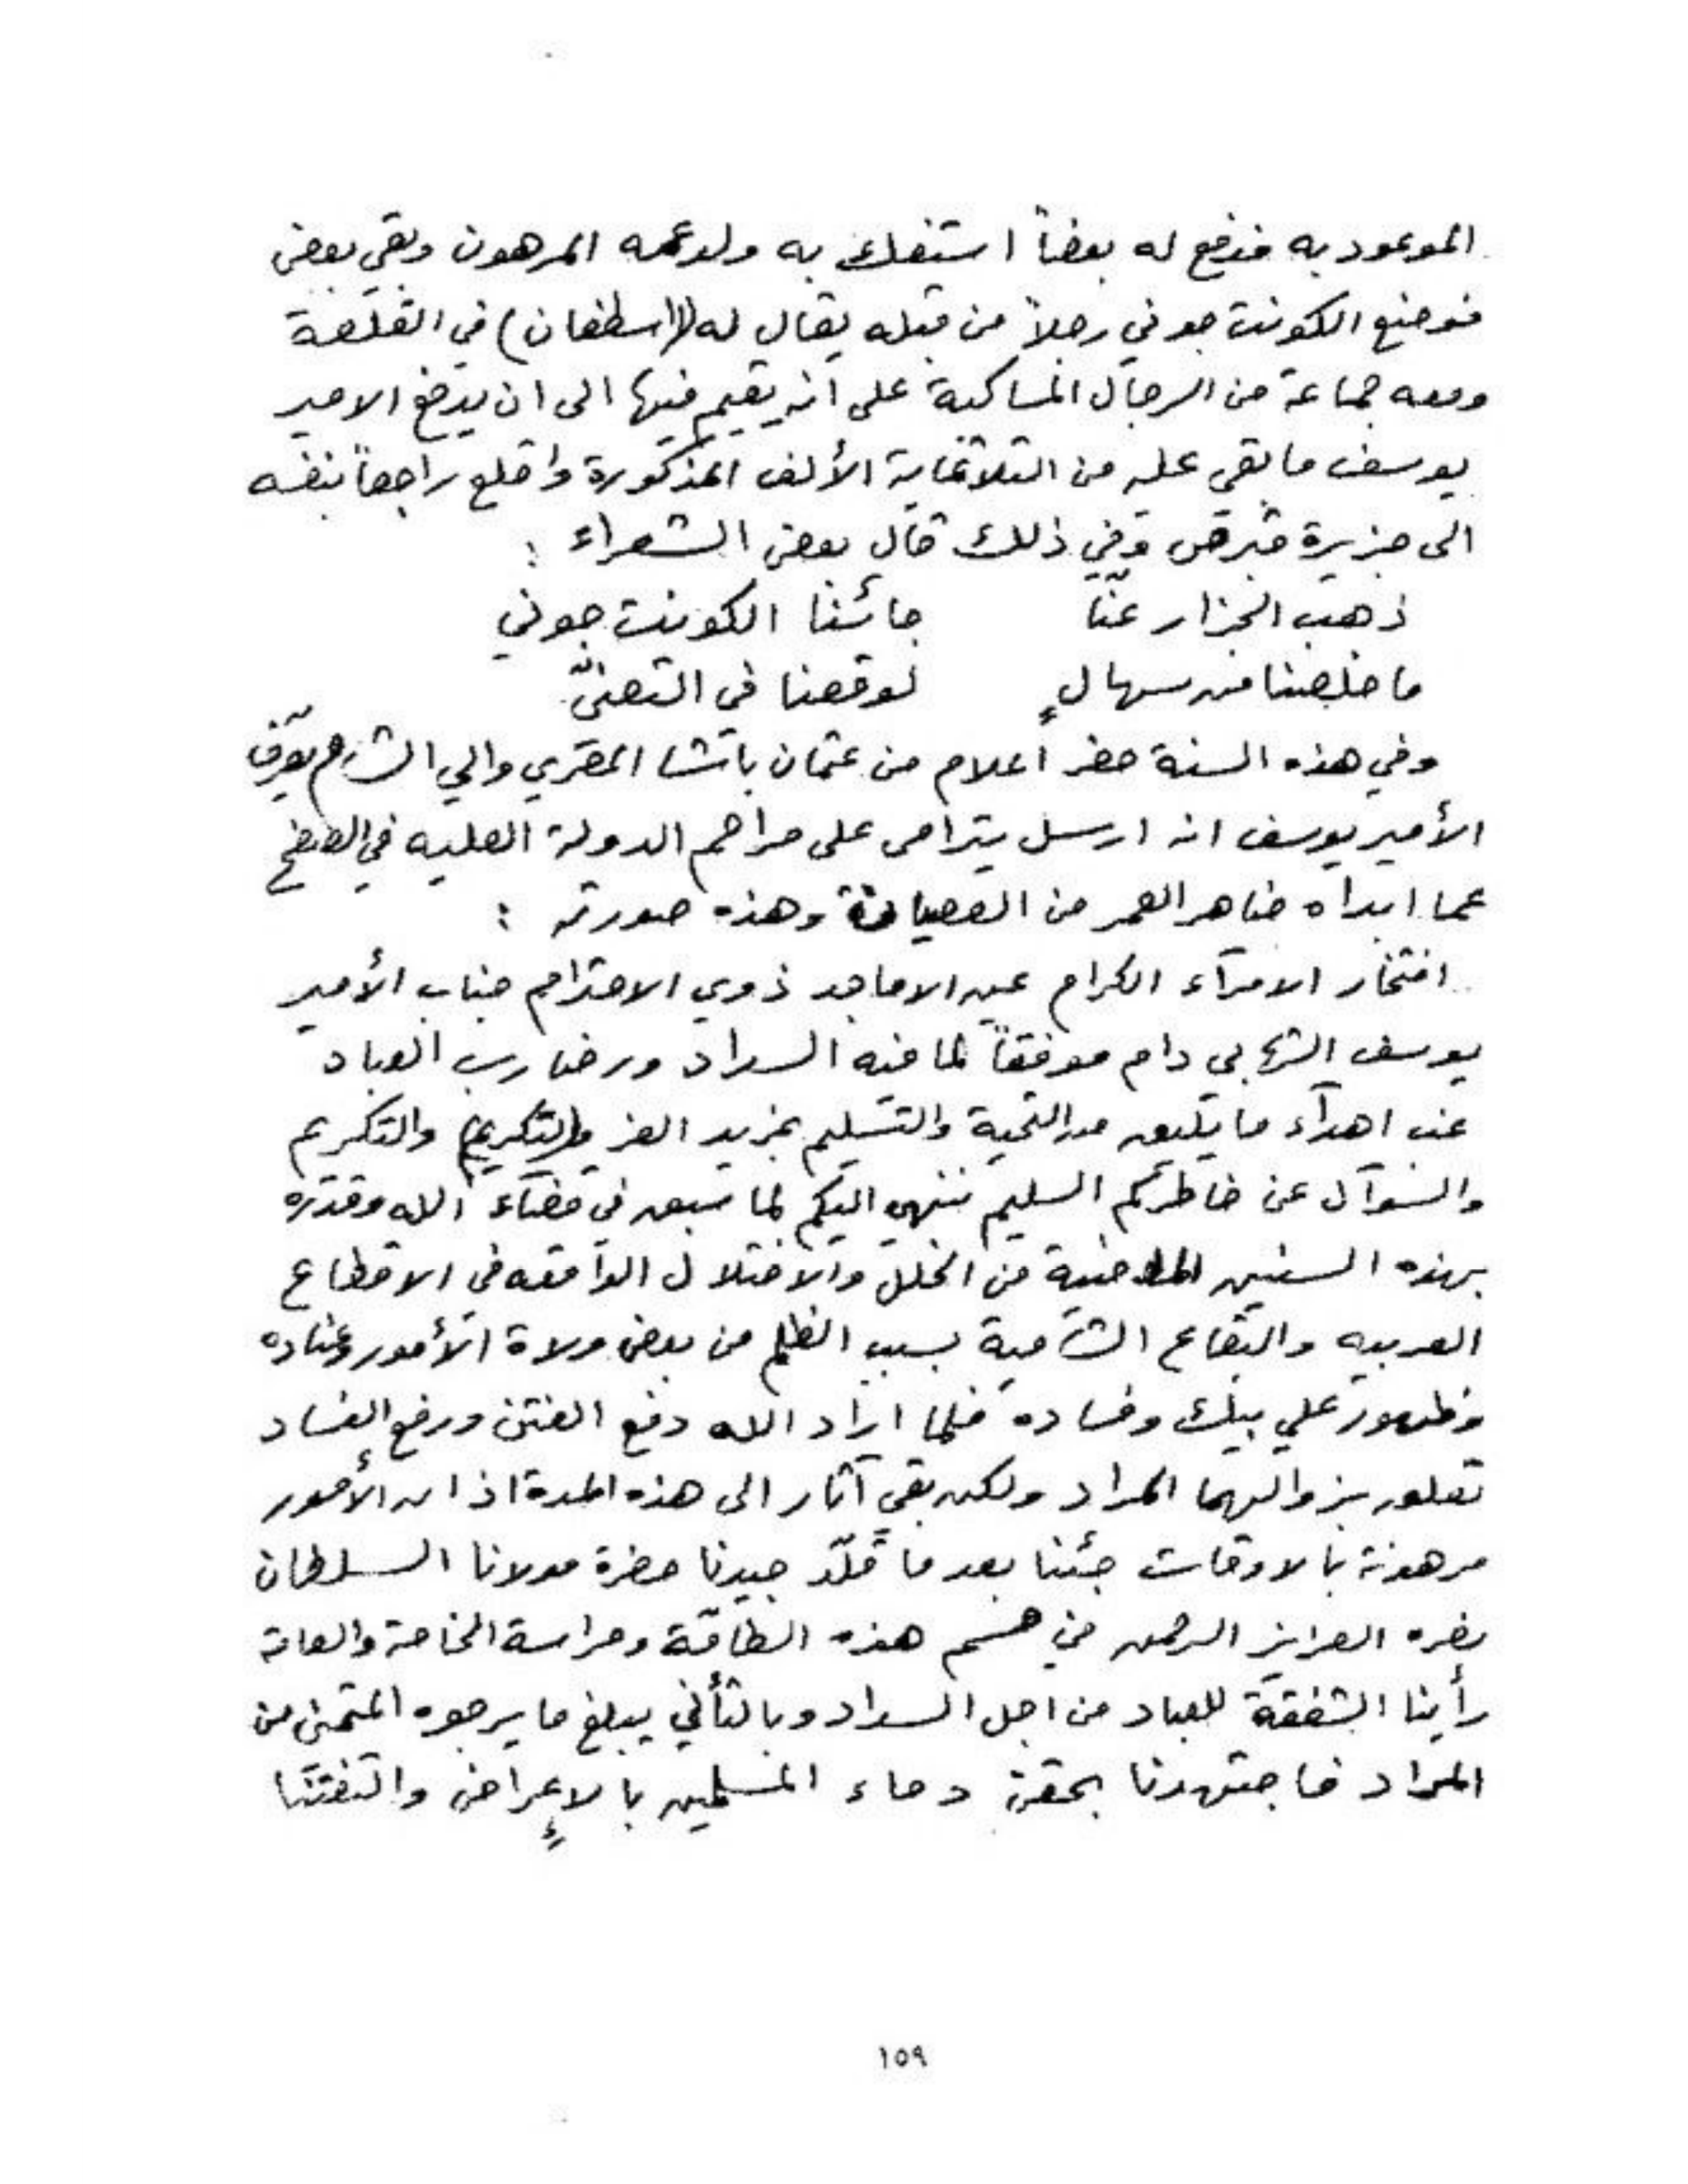 الموعود به فدفع له بعضاً استفك به ولد عمه المرهون وبقي بعض
فوضع الكونت جوني رجلاً من قبله يقال له (اسطفان) في القلعة
ومعه جماعة من الرجال المساكبة على انه يقيم فيها الى ان يدفع الامير
يوسف ما بقي عليه من الثلاثماية الألف المذكورة واقلع راجعاً بنفسه
الى جزيرة قبرص وفي ذلك قال بعض الشعراء :
ذهب الجزار عنّا جائنا الكونت جوني
ما خلصنا من سهالٍ لوقعنا في التعنّي
وفي هذه السنة حضر اعلام من عثمان باشا المصري والي الشام يعرّف
الأمير يوسف انه ارسل يترامى على مراحم الدولة العليه في الصفح
عما ابداه ضاهر العمر من العصيان وهذه صورته :
افتخار الامرآء الكرام عين الاماجد ذوي الاحترام جناب الأمير
يوسف الشهابي دام موفقاً لما فيه السداد ورضا رب العباد
غب اهدآء ما يليق من التحية والتسليم بمزيد العز والتكريم
والسؤآل عن خاطركم السليم ننهي اليكم لما سبق في قضآء الله وقدره
بهذه السنين الماضية من الخلل والاختلال الواقعه في الاقطاع
العربيه والبقاع الشامية بسبب الظلم من بعض ولاة الأمور وعناده
وظهور علي بيك وفساده فلما اراد الله دفع الفتن ورفع الفساد
تعلق بزوالهما المراد ولكن بقي آثار الى هذه المدة اذ ان الأمور
مرهونة بالاوقات جئنا بعد ما قلّد جيدنا حضرة مولانا السلطان
نصره العزيز الرحمن في حسم هذه الطاقّة وحراسة الخاصة والعامة
رأينا الشفقة للعباد من اجل السداد وبالتأني يبلغ ما يرجوه المتمني من
المراد فاجتهدنا بحقن دماء المسلمين بالإعراض والتفتنا
١٥٩